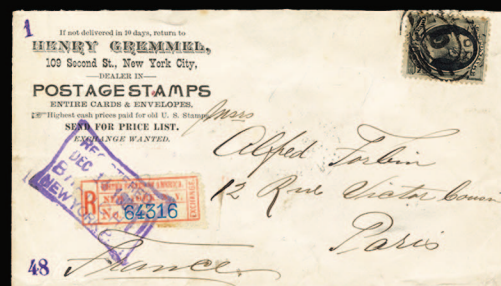 1
If not delivered in 10 days, return to
HENRY GREMMEL,
109 Second St., New York City,
—DEALER IN—
POSTAGE STAMPS
ENTIRE CARDS & ENVELOPES.
Highest cash prices paid for old U. S. Stamps
SEND FOR PRICE LIST.
EXCHANGE WANTED.
Messrs
Alfred Forbin
12 Rue Victor
Paris
France
DEC
NEW YORK
R
No. 64316
EXCHANGE
48